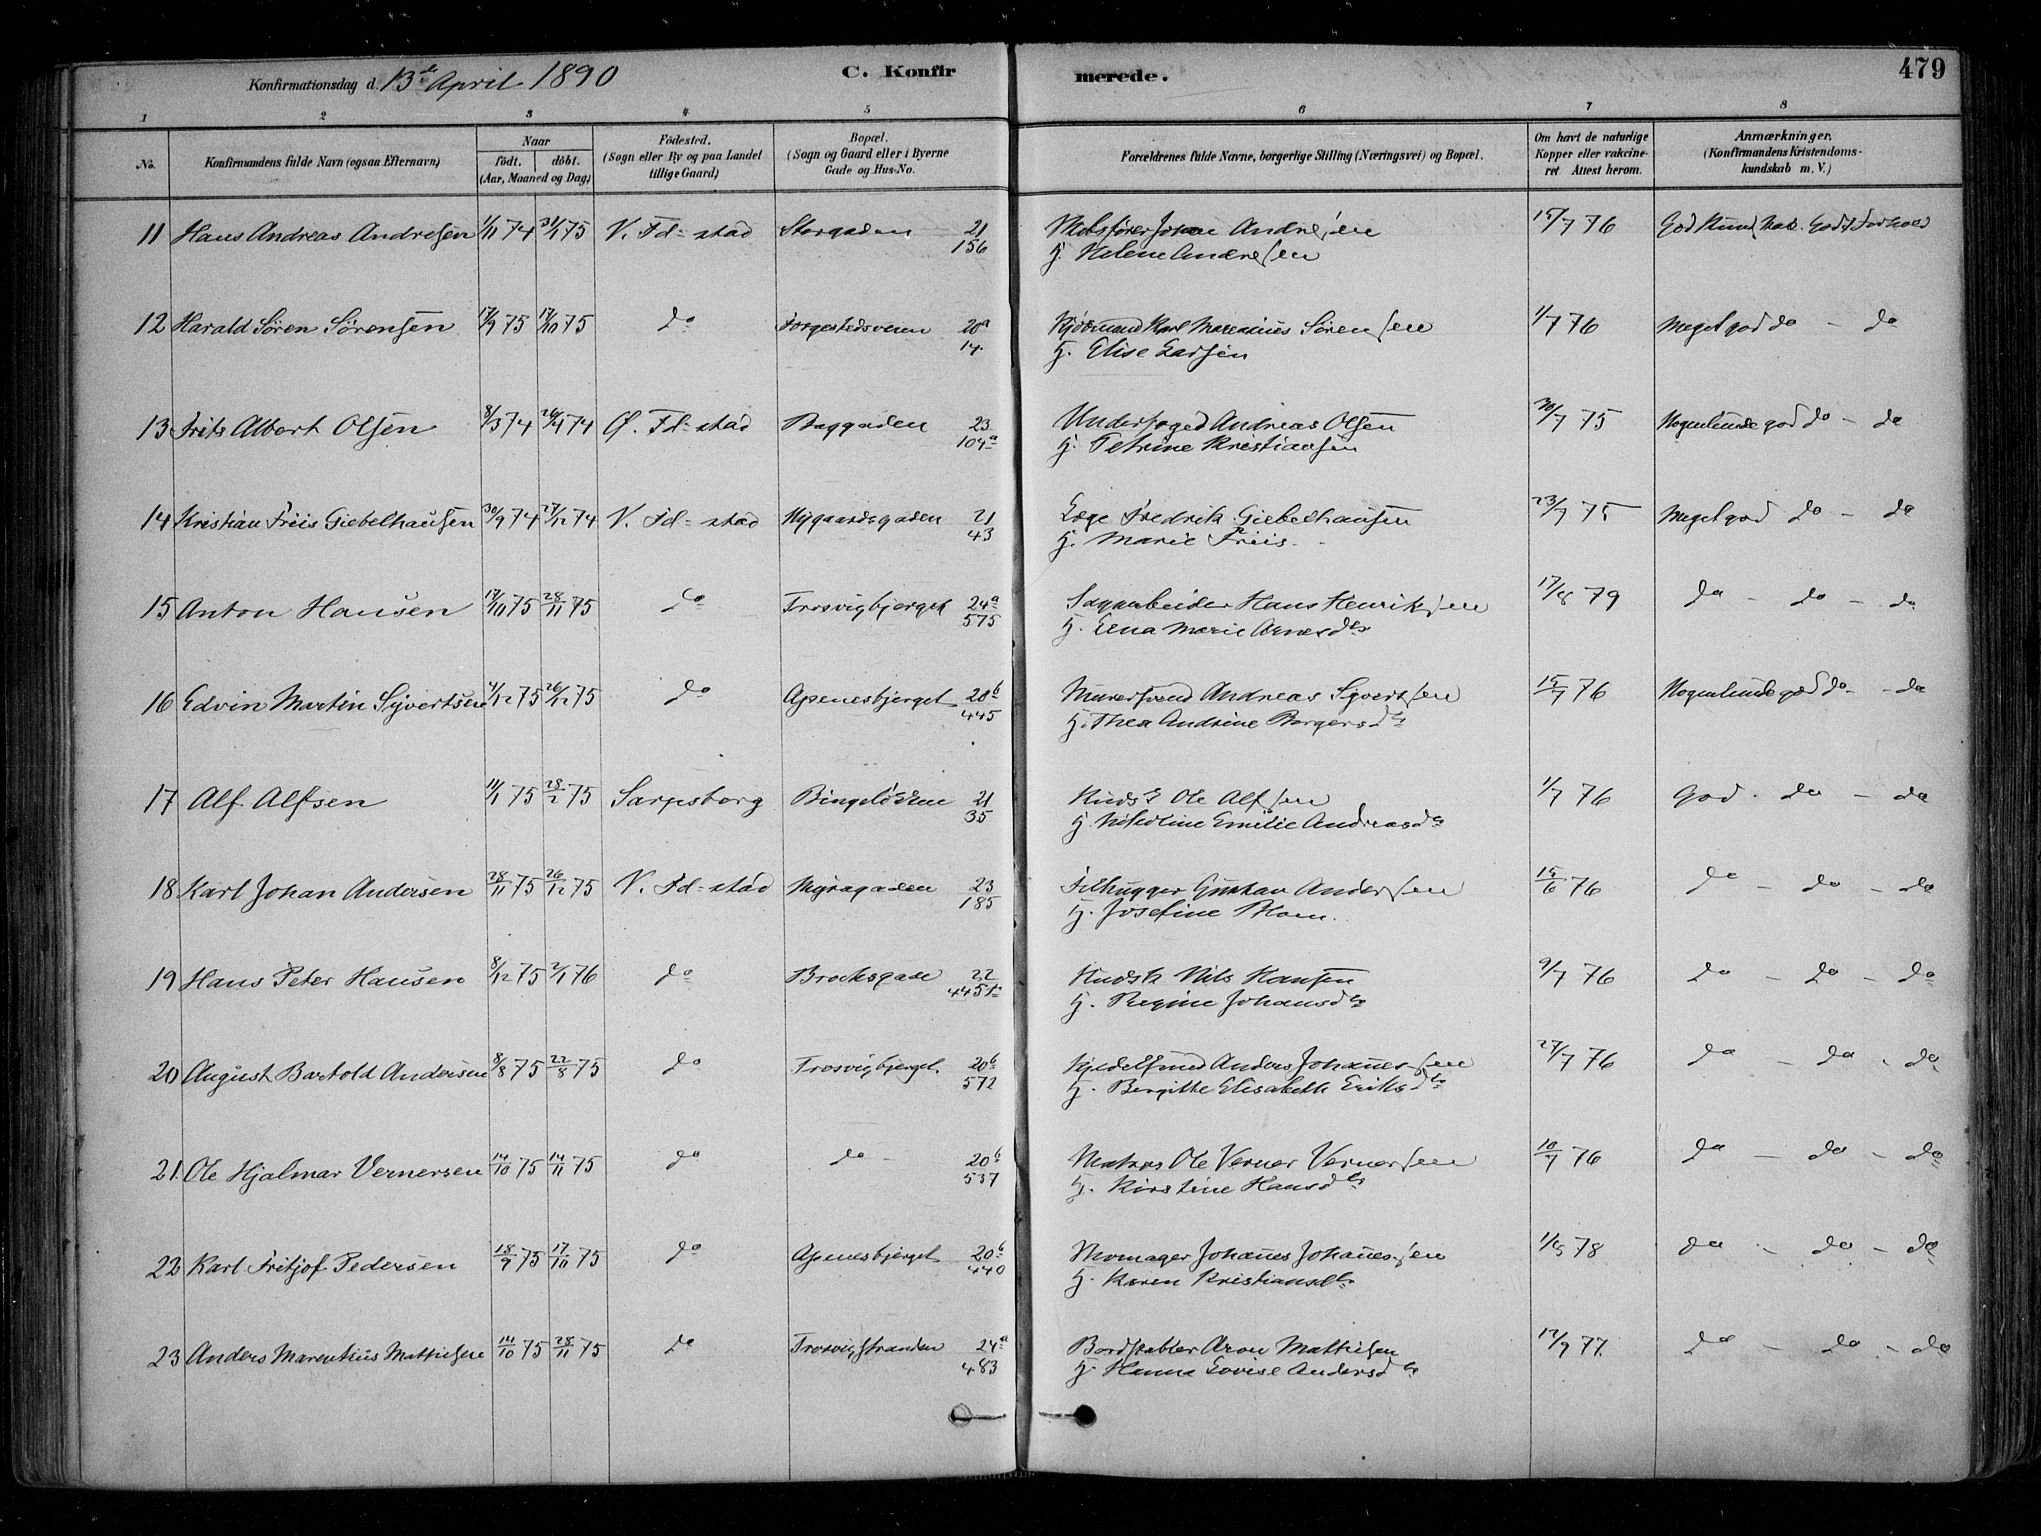 Konfirmationsdag d. 13de April 1890 C. Konfirmerede. 479
1 2 3 4 5 6 7 8
No. Konfirmandens fulde Navn (ogsaa Efternavn) Naar födt. döbt. (Aar, Maaned og Dag) Födested. (Sogn eller By og paa Landet tillige Gaard) Bopæl. (Sogn og Gaard eller i Byerne Gade og Hus-No. Forældrenes fulde Navne, borgerlige Stilling (Næringsvei) og Bopæl. Om havt de naturlige Kopper eller vakcineret Attest herom. Anmærkninger. (Konfirmandens Kristendomskundskab m. V.)
11 Hans Andreas Andresen 1/11 74 31/1 75 V. Fd=stad Storgaden 21 Johan Andresen 15/7 76 God Kundskab. Godt Forhold
156 H. Helene Andresen
12 Harald Sören Sörensen 17/9 75 17/10 75 do 20a Karl Marenius Sörensen 1/7 76 Meget god do - do
14. H. Elise Larsen
13 Frits Albert Olsen 8/3 74 26/4 74 Ø. Fd=stad Baggaden 23 Underfoged Andreas Olsen 30/7 75 Nogenlunde god do - do
104a H. Petrine Kristiansen
14 Kristian Friis Giebelhausen 30/9 74 27/12 74 V. Fd=stad Nygaardsgaden 21 Læge Fredrik Giebelhausen 23/7 75 Meget god do - do
43 H. Marie Friis.
15 Anton Hansen 17/10 75 28/11 75 do Trosvigbjerget 24a Sagarbeider Hans Henriksen 17/8 79 do - do - do
575 H. Lena Marie Arnesdtr
16 Edvin Martin Syvertsen 4/12 75 26/12 75 do Apenesbjerget 20b Murersvend Andreas Syvertsen 15/7 76 Nogenlunde god do - do
445 H. Thea Andrine Borgersdtr
17 Alf Alfsen 11/1 75 28/2 75 Sarpsborg Bingelökken 21 Kudsk Ole Alfsen 1/7 76 God. do - do
35 H. Nikoline Emilie Andreasdtr
18 Karl Johan Andersen 28/11 75 26/12 75 V. Fd=stad Myragaden 23 Filhugger Gustav Andersen 15/6 76 do - do - do
185 H. Josefine Blom.
19 Hans Peter Hansen 8/12 75 2/1 76 do Brochsgade 22 Kudsk Nils Hansen 9/7 76 do - do - do
445 H. Regine Johansdtr
20 August Bartold Andersen 8/8 75 22/8 75 do Trosvigbjerget. 20b Anders Johannessen 27/7 76 do - do - do
572 H. Bergitte Elisabeth Eriksdtr
21. Ole Hjalmar Vernersen 14/10 75 14/11 75 do do - 20b Matros Ole Verner Vernersen 10/7 76 do - do - do
537 H. Kirstine Hansdtr
22 Karl Fritjof Pedersen 18/9 75 17/10 75 do Apenesbjerget 20b Skomager Johannes Johannessen 78 do - do - do
440 H. Karen Kristiansdtr
23 Anders Marentius Mattisen 14/10 75 28/11 75 do Trosvigstranden 24a Bordstabler Aron Mattisen 12/9 77. do - do - do
483 H. Hanna Lovise Andersdtr